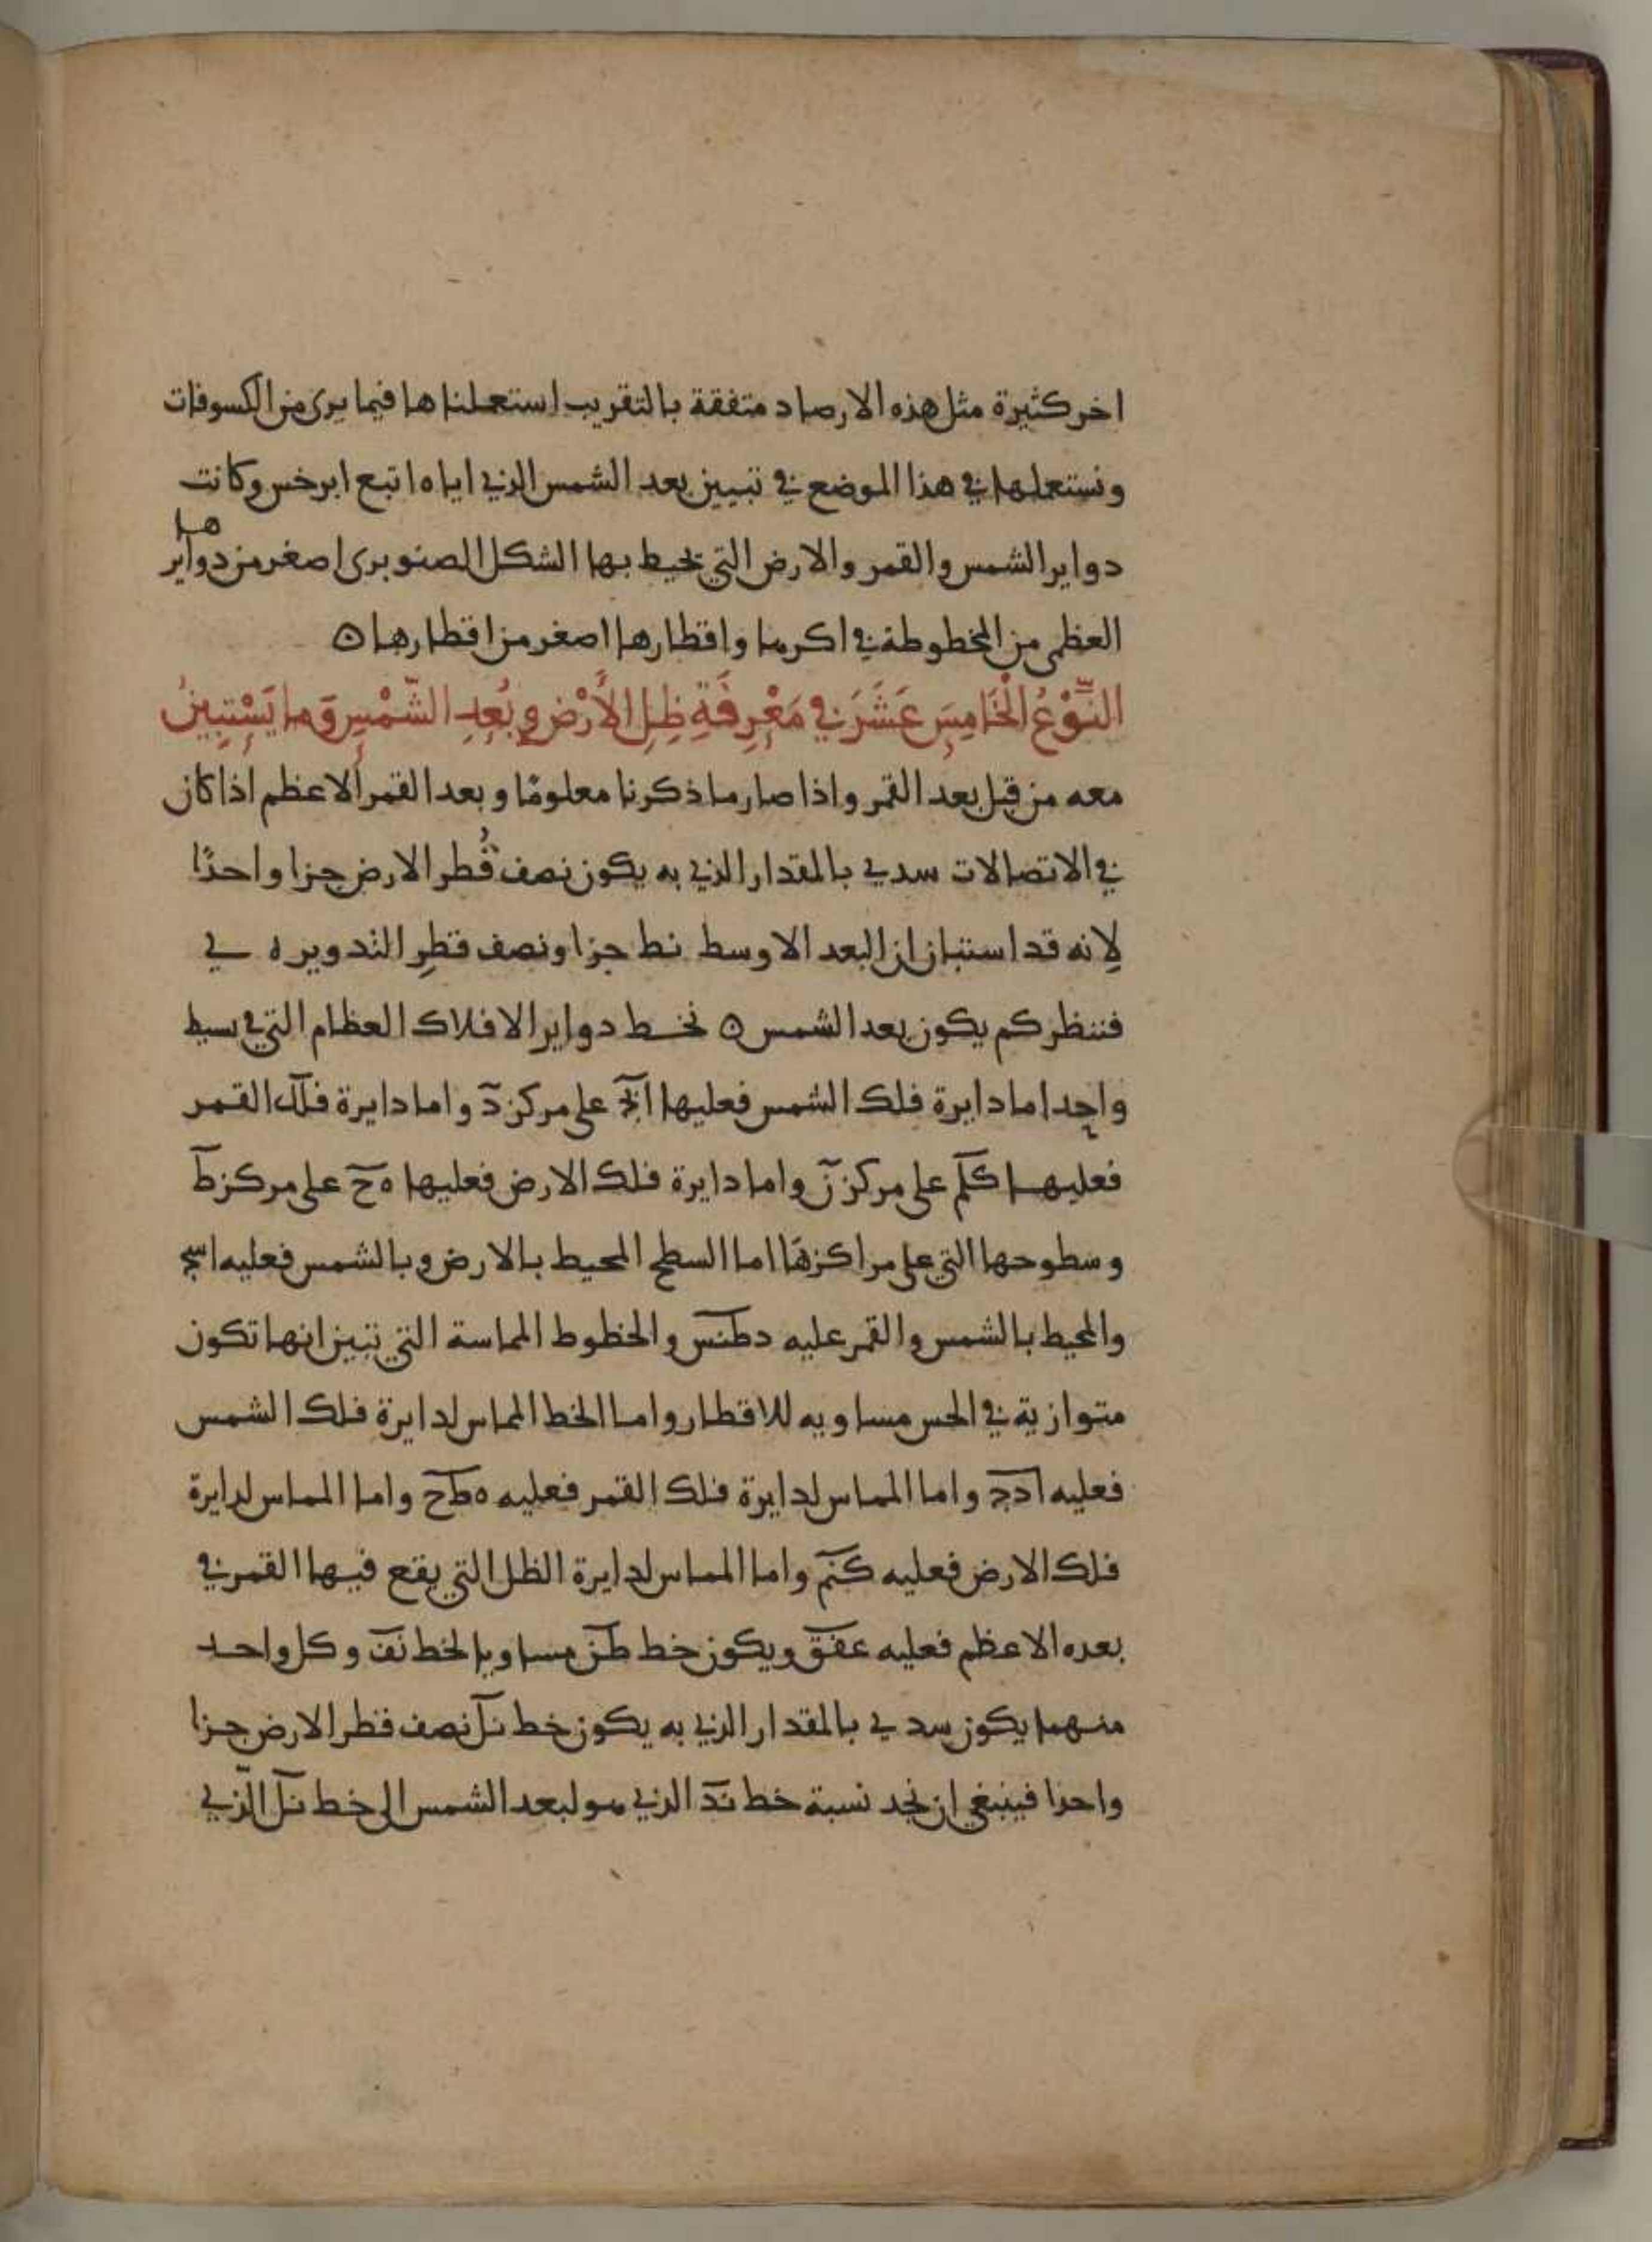 اخر كثيرة مثل هذه الارصاد متفقة بالتقريب استعملناها فيما يرى من الكسوفات
ونستعملها في هذا الموضع في تبيين بعد الشمس الذي اياه اتبع ابرخس وكانت
دواير الشمس والقمر والارض التي يحيط بها الشكل الصنوبرى اصغر من دوايرها
العظمى من المخطوطة في اكرها واقطارها اصغر من اقطارها ن
النَّوْعُ الْخَامِسَ عَشَرَ في مَعْرِفَةِ ظِلِ الأَرْضِ وبُعِدِ الشَّمْسِ وَما يَسْتِبِينُ
معه من قبل بعد القمر واذا صار ما ذكرنا معلومًا وبعد القمر الاعظم اذا كان
في الاتصالات سد ي بالمقدار الذي به يكون نصف قُطر الارض جزا واحدًا
لانه قد استبان ان البعد الاوسط نط جزا ونصف قطرِ التدوير ه ي
فننظر كم يكون بعد الشمس ن نخط دواير الافلاك العظام التي في بسيط
واحد اما دايرة فلك الشمس فعليها ابج على مركز د واما دايرة فلك القمر
فعليها كلم على مركز ن واما دايرة فلك الارض فعليها ه ح على مركز ط
وسطوحها التي على مراكزها اما السطح المحيط بالارض وبالشمس فعليه اسج
والمحيط بالشمس والقمر عليه دطنس والخطوط المماسة التي تبين انها تكون
متوازية في الحس مساويه للاقطار واما الخط المماس لدايرة فلك الشمس
فعليه ادج واما المماس لدايرة فلك القمر فعليه هطح واما المماس لدايرة
فلك الارض فعليه كنم واما المماس لدايرة الظل التي يقع فيها القمر في
بعده الاعظم فعليه عفق ويكون خط طن مساويا لخط نف وكل واحد
منهما يكون سد ي بالمقدار الذي به يكون خط نل نصف قطر الارض جزا
واحدا فينبغي ان نجد نسبة خط ند الذي هو لبعد الشمس الى خط نل الّذي